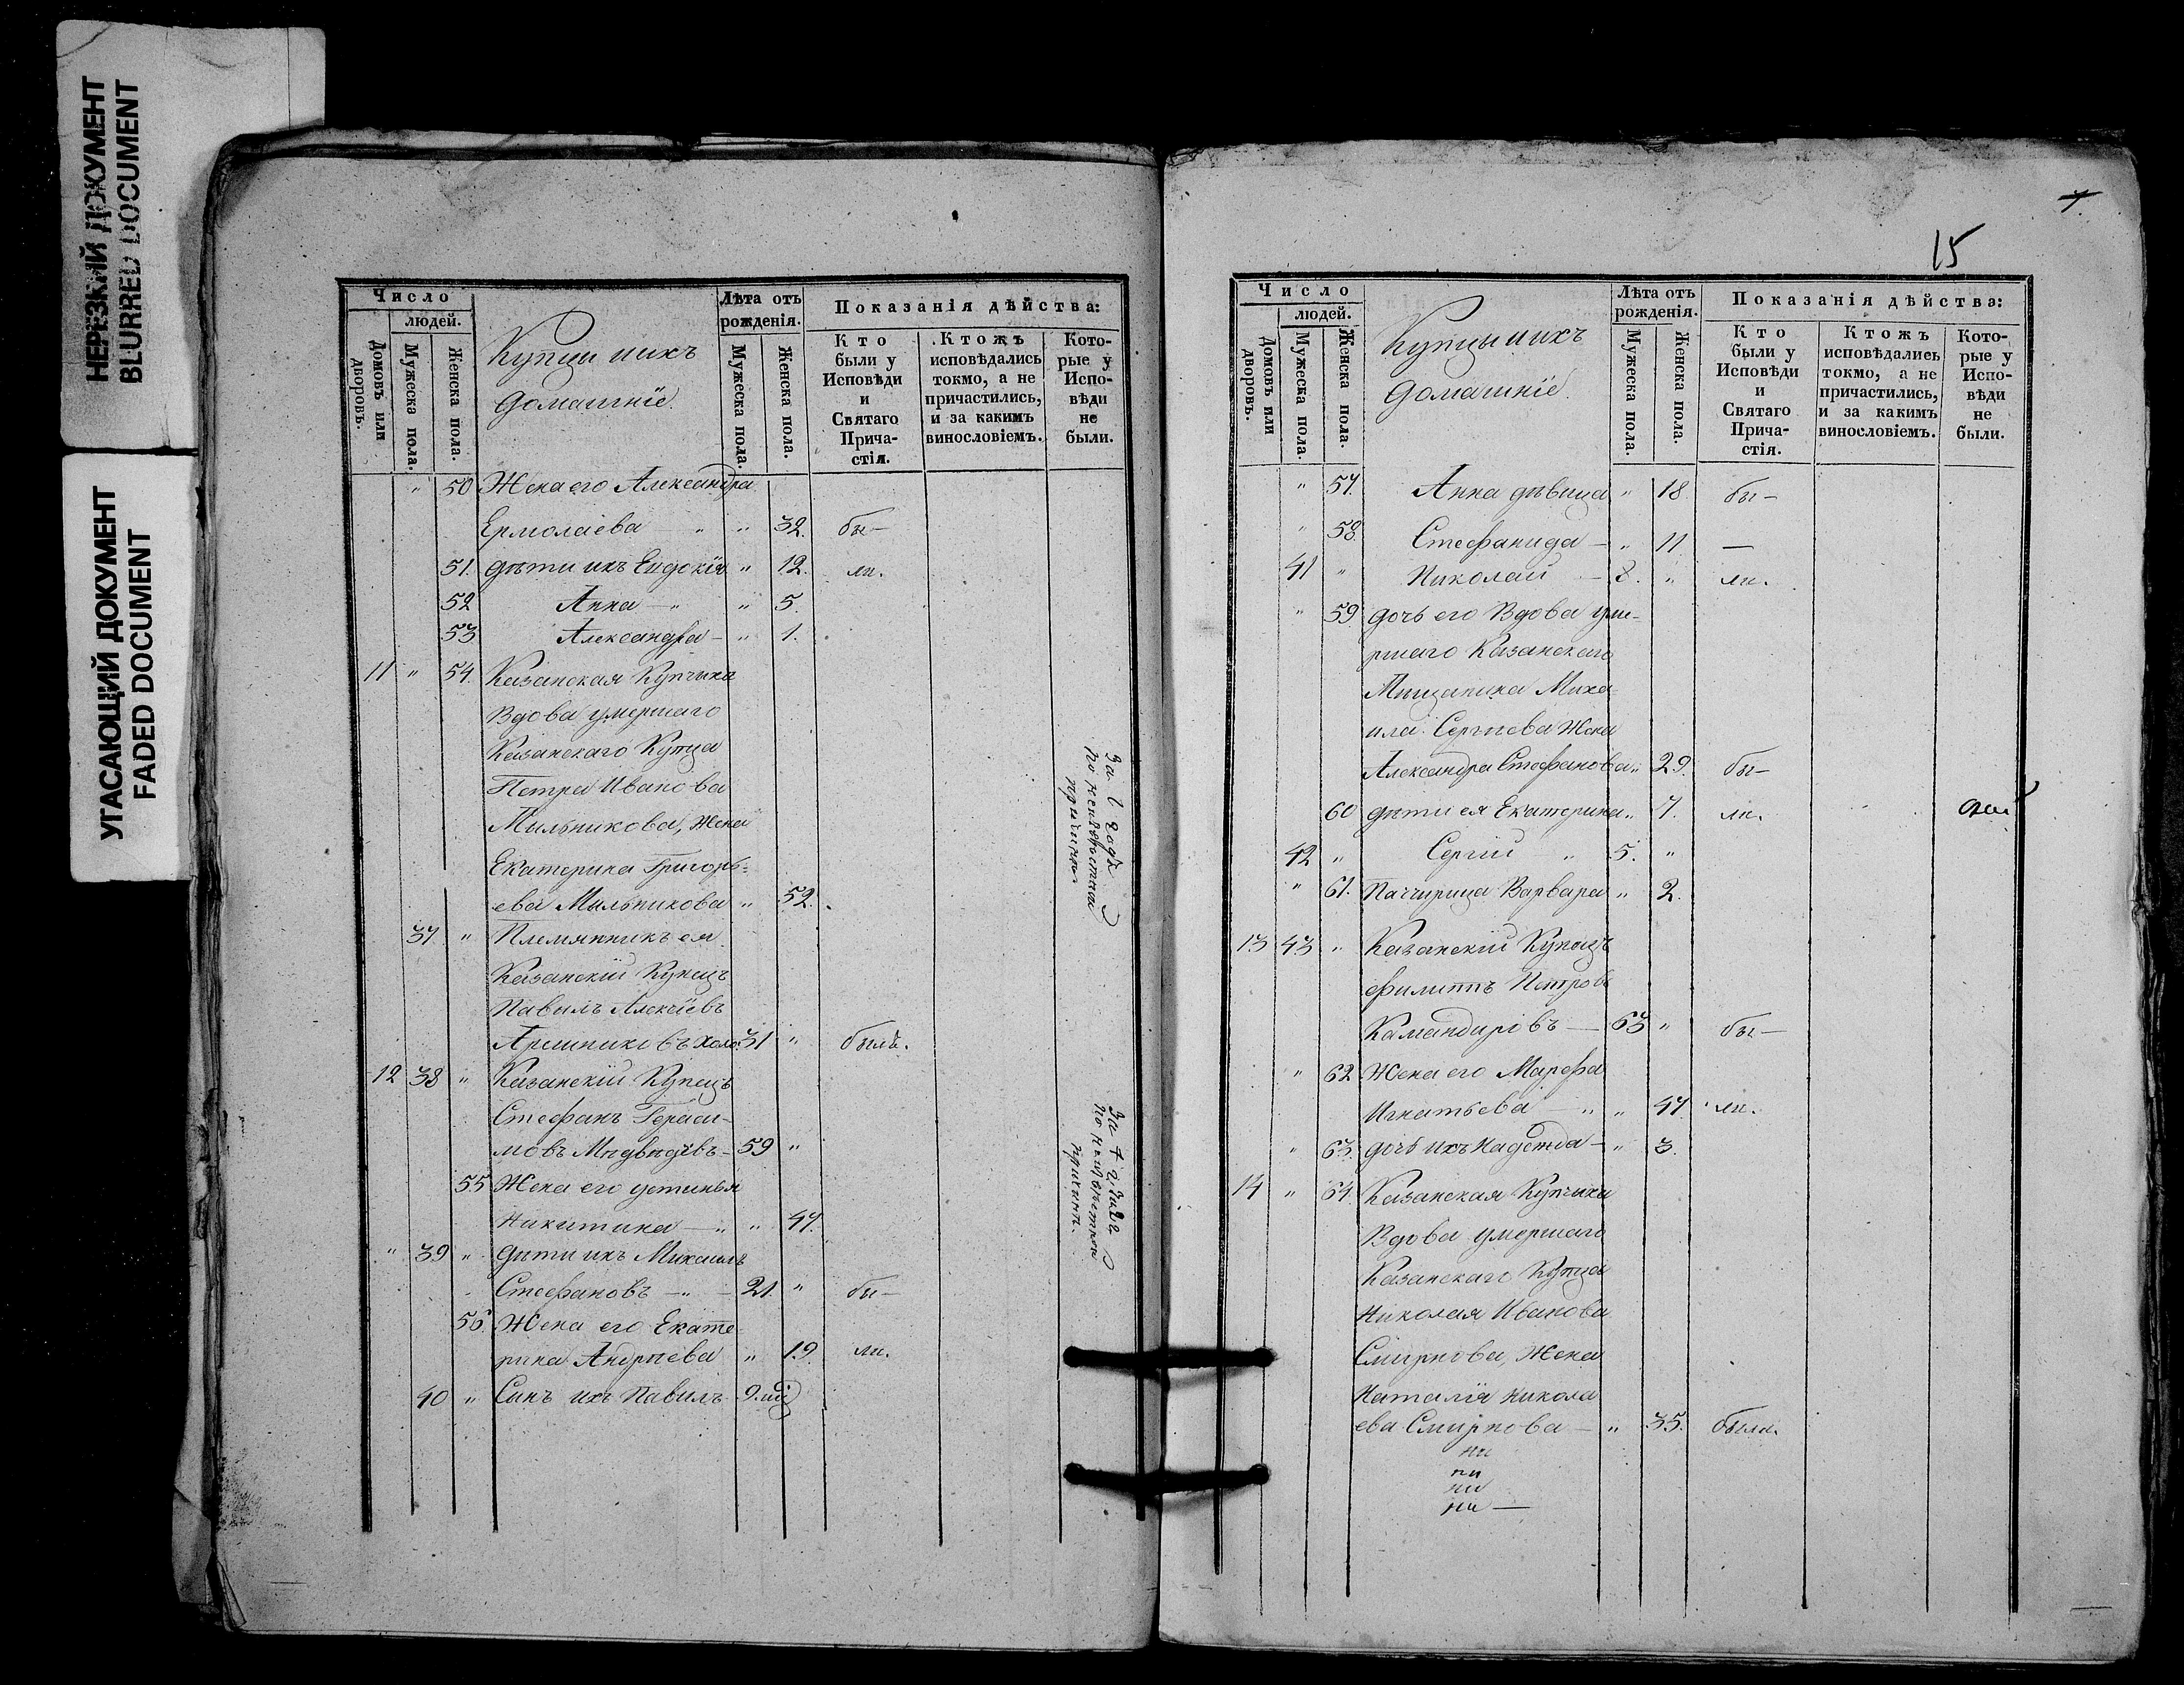 НЕРЕЗКИЙ ДОКУМЕНТ
BLURRED DOCUMENT
УГАСАЮЩИЙ ДОКУМЕНТ
FADED DOCUMENT
Число
людей.
Домовъ или дворовъ.
Мужеска пола.
Женска пола.
Купцы и ихъ
домашніе.
Лѣта отъ рожденія.
Мужеска пола.
Женска пола.
Показанія дѣйства:
Кто были у Исповѣди и Святаго Прича-стія.
Ктожъ исповѣдались токмо, а не причастились, и за какимъ винословіемъ.
Кото-рые у Испо-вѣди не были.
" 50 Жена его Александра
Ермолаева — " " 32. бы-
51. дѣти ихъ Евдокія " 12. ли.
52 Анна — " " 5.
53 Александра — " 1.
11 " 54. Казанская Купчиха
Вдова умершаго
Казанскаго Купца
Петра Иванова
Мыльникова, Жена
Екатерина Григорь-
ева Мыльникова " 52.
за 1 годъ
по неизвѣстной
причинѣ
37 " Племянникъ ея
Казанскій Купецъ
Павелъ Алексѣевъ
холо. 31 " былъ.
12 38 " Казанскій Купецъ
Стефанъ Гераси-
мовъ Медвѣдевъ — 59 "
55 Жена его Устинья
Никитина — " " 47.
за 4 года
по неизвѣстной
причинѣ.
" 39 " дѣти ихъ Михаилъ
Стефановъ — " — 21. " бы-
56. Жена его Екате-
рина Андреева " 19. ли.
40 " Сынъ ихъ Павелъ 9.
7.
15
Число
людей.
Домовъ или дворовъ.
Мужеска пола.
Женска пола.
Купцы и ихъ
домашніе.
Лѣта отъ рожденія.
Мужеска пола.
Женска пола.
Показанія дѣйства:
Кто были у Исповѣди и Святаго Прича-стія.
Ктожъ исповѣдались токмо, а не причастились, и за какимъ винословіемъ.
Кото-рые у Испо-вѣди не были.
" 57. Анна дѣвица " 18. бы-
" 58. Стефанида — " 11. —
41 " Николай — 8. " ли.
" 59 дочь его Вдова уме-
ршаго Казанскаго
Мещанина Миха-
ила Сергѣева Жена
Александра Стефанова " 29. бы-
60 дѣти ея Екатерина " 7. ли.
42 " Сергій " 5. "
" 61. Варвара " 2.
13 43 " Казанскій Купецъ
Филиппъ Петровъ
Камандировъ — 63 " бы-
" 62 Жена его Марфа
Игнатьева — " " 47. ли.
" 63. дочь ихъ Надежда — " 3.
14 " 64. Казанская Купчиха
Вдова умершаго
Казанскаго Купца
Николая Иванова
Смирнова, Жена
Наталія Никола
ева Смирнова — " 35. были.